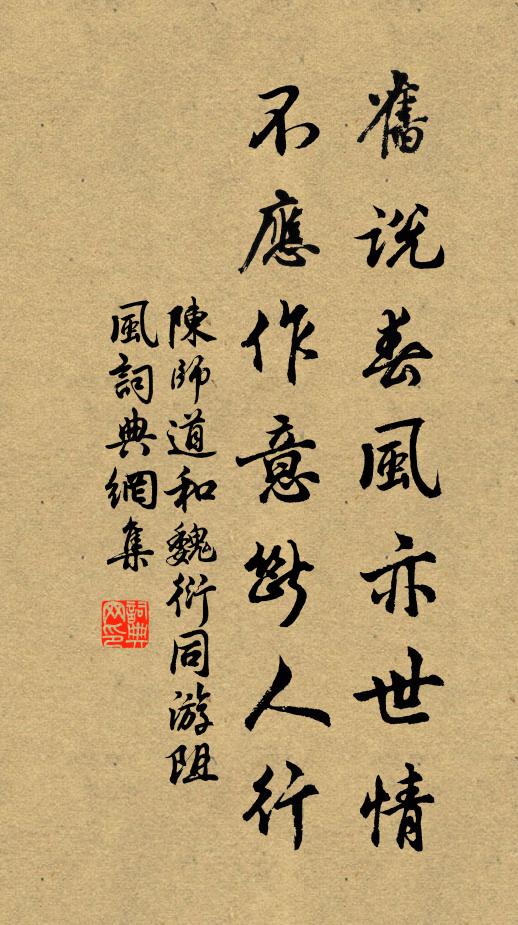 舊説春風亦世情
不應作意斷人行
陳師道和魏衍同游阻
風詞典網集
詞典网印